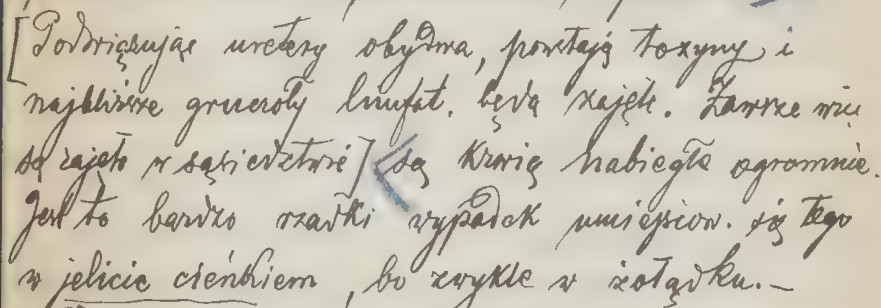 [Podwiązując uretery obydwa, powstają toxyny i
najbliższe gruczoły limfat. będą zajęte. Zawsze więc
są zajęte w sąsiedztwie] są krwią nabiegłe ogromnie.
Jest to bardzo rzadki wypadek umiejscow. się tego
w jelicie cieńkiem, bo zwykle w żołądku.—